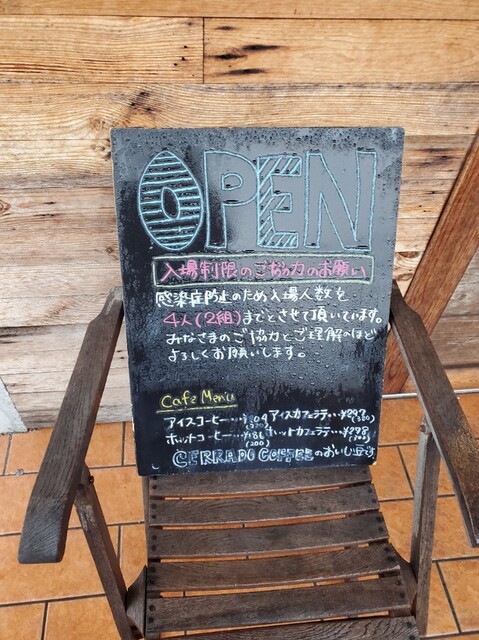 OPEN
入場制限のご協力のお願い
感染症防止のため入場人数を
4人(2組)までとさせて頂いています。
みなさまのご協力とご理解のほど
よろしくお願いします。
Cafe Menu
アイスコーヒー… アイスカフェラテ…¥297
(320)
ホットコーヒー…¥186 ホットカフェラテ…¥278
(200) (300)
CERRADO COFFEEのおいしい